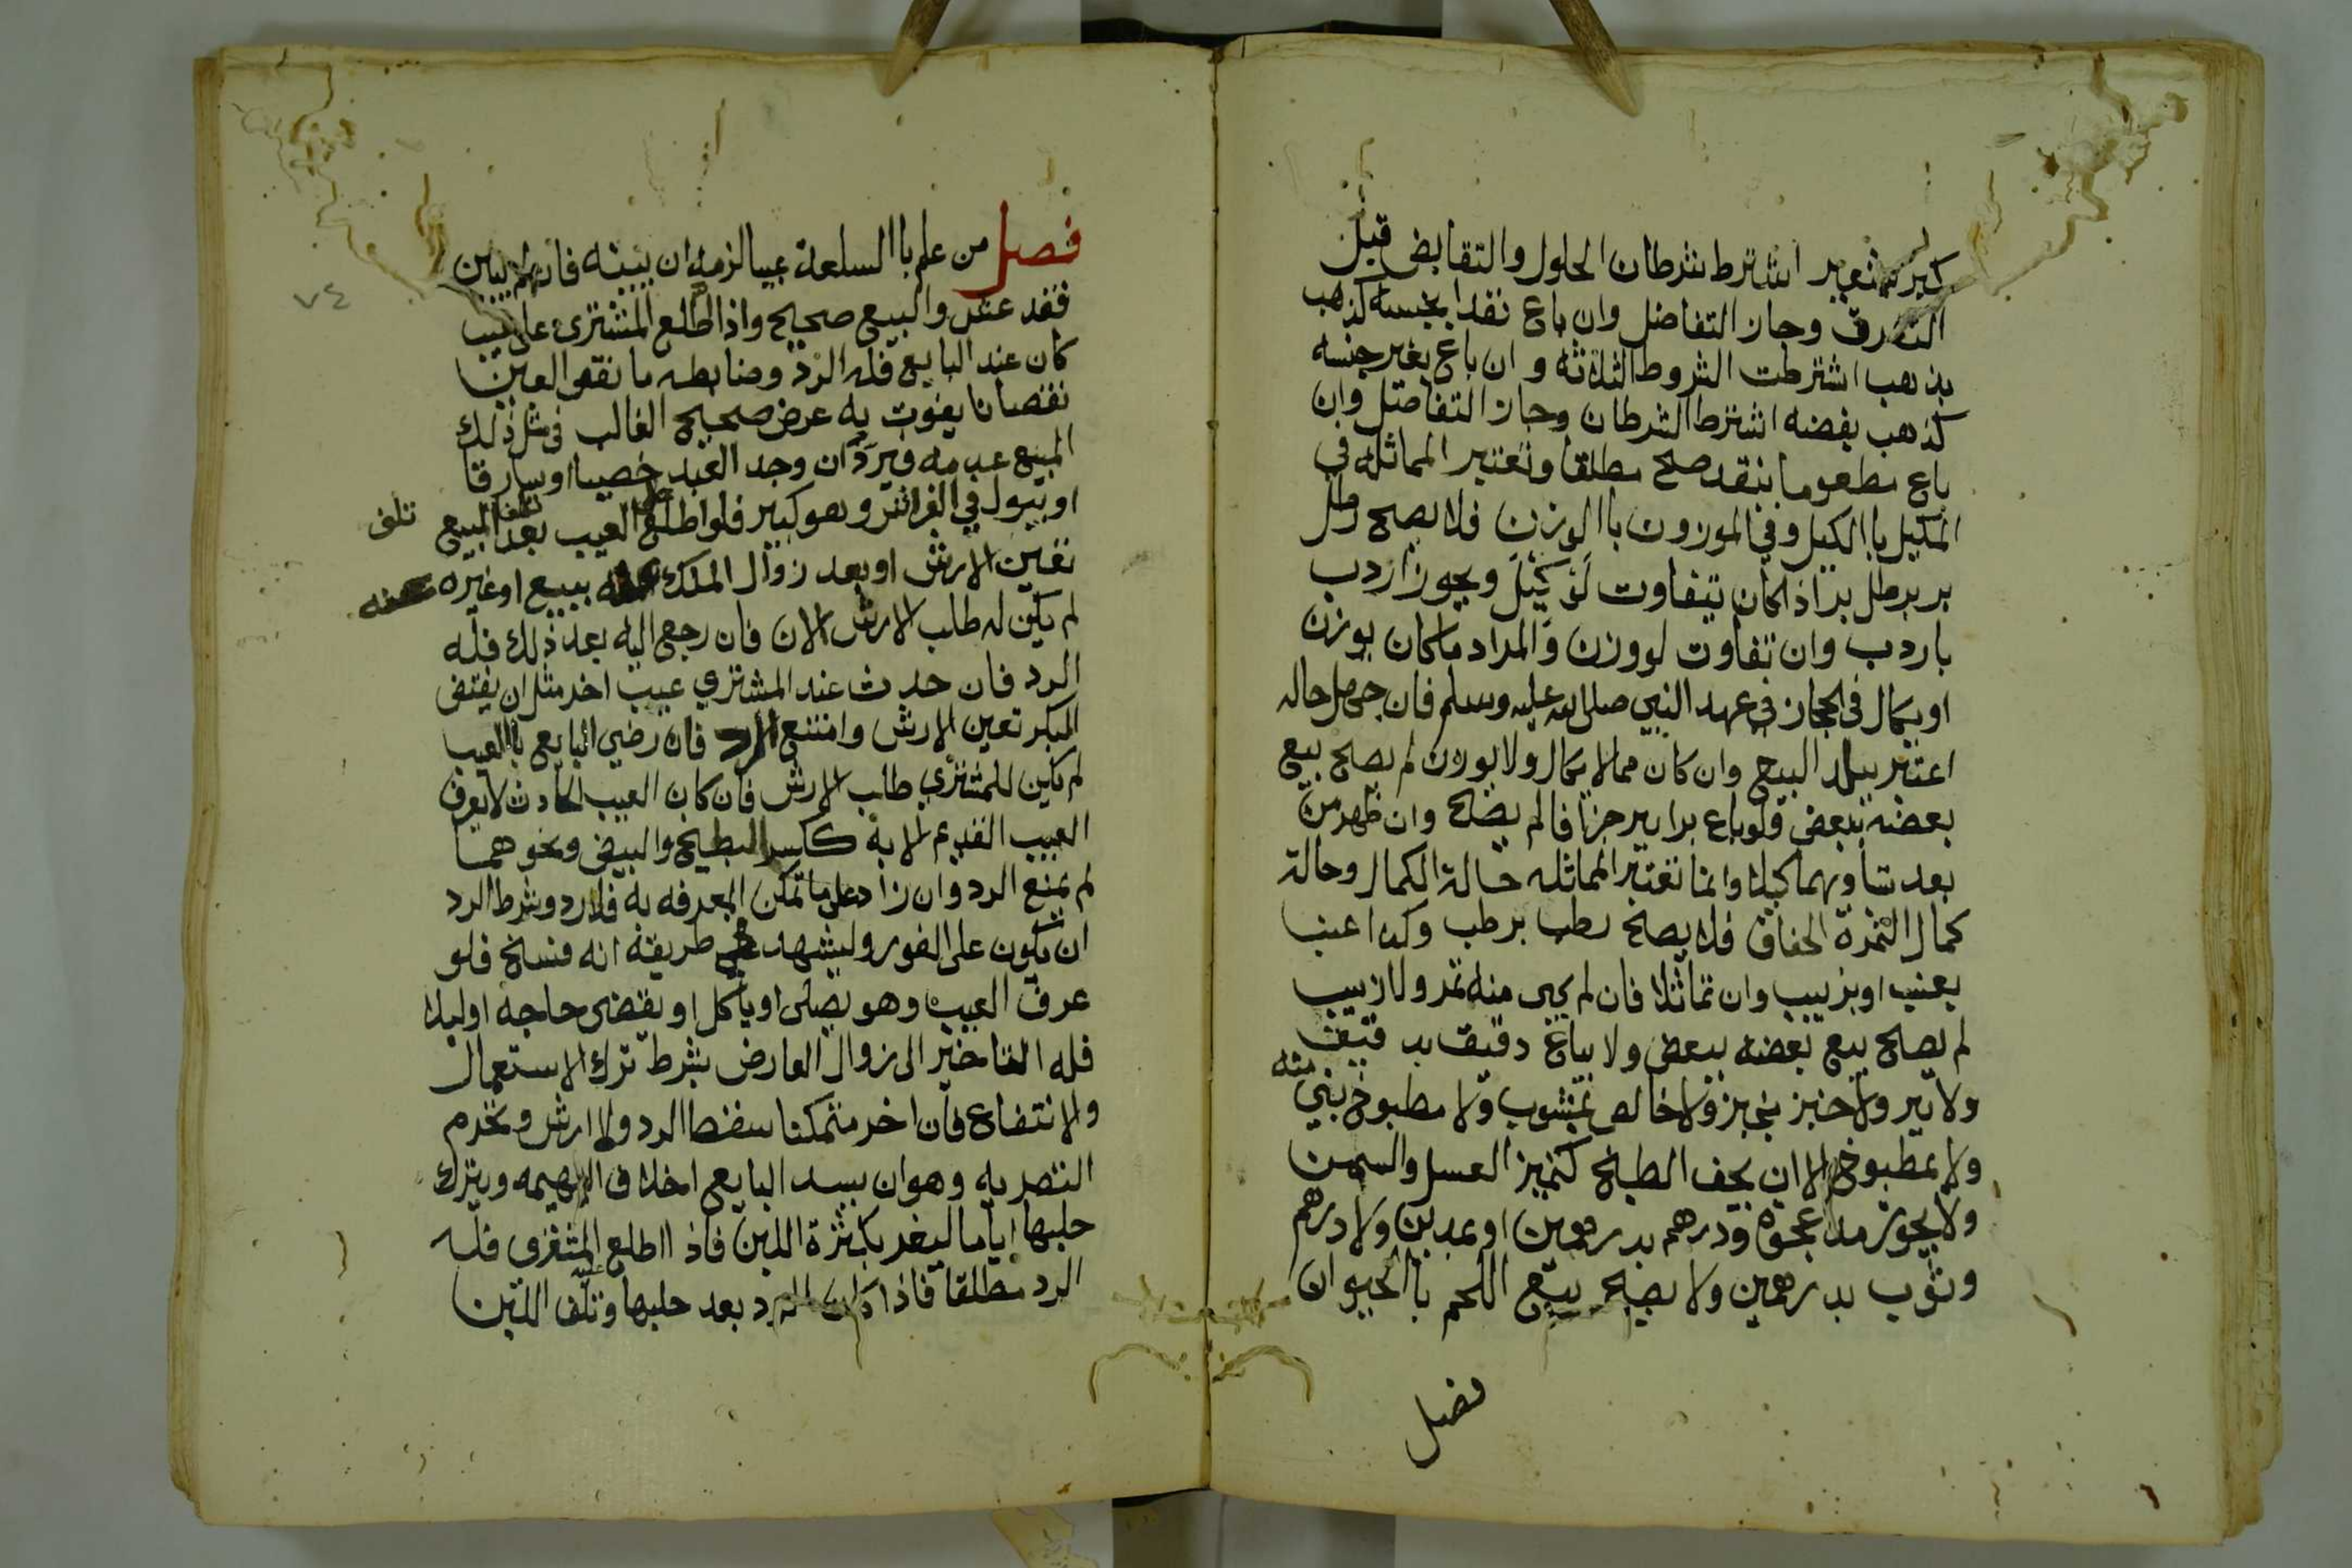 كبر بشعير اشترط شرطان الحلول والتقابض قبل
التفرق وجاز التفاضل وان باع نقدا بجنسه كذهب
بذهب اشترطت الشروط الثلاثة و ان باع بغير جنسه
كذهب بفضه اشترط الشرطان وجاز التفاضل وان
باع مطعوما بنقد صح مطلقا وتعتبر المماثله في
المكيل باالكيل وفي الموزون باالوزن فلا يصح رطل
بر برطل بر اذا كان يتفاوت لو كيل ويجوز اردب
باردب وان تفاوت لو وزن والمراد ما كان يوزن
او يكال في الحجاز في عهد النبي صلى الله عليه وسلم فان جهل حاله
اعتبر ببلد البيع وان كان مما لا يكال ولا يوزن لم يصح بيع
بعضه ببعض فلو باع برا ببر جزافا لم يصح وان ظهر من
بعد تساويهما كيلا وانما تعتبر المماثله حالة الكمال وحالة
كمال الثمرة الجفاف فلا يصح رطب برطب وكذا عنب
بعنب او بزبيب وان تماثلا فان لم يجى منه تمر ولا زبيب
لم يصح بيع بعضه ببعض ولا يباع دقيق بدقيق مثله
ولا ببر ولا خبز بخبز ولا خالص بمشوب ولا مطبوخ بني
ولا بمطبوخ الا ان يخف الطبخ كتمييز العسل والسمن
ولا يجوز مد عجوة ودرهم بدرهمين او بمدين ولا درهم
وثوب بدرهمين ولا يصح بيع اللحم باالحيوان
فصل
٧٤
فصل من علم باالسلعة عيبا لزمه ان يبينه فان لم يبين
فقد غش والبيع صحيح واذا اطلع المشترى على عيب
كان عند البايع فله الرد وضابطه ما نقص العين
نقصانا يفوت به غرض صحيح الغالب في مثل ذلك
المبيع عدمه فيرد ان وجد العبد خصيا او سارقا
او يبول في الفراش وهو كبير فلو اطلع على العيب بعد تلف المبيع تلف
تعين الارش او بعد زوال الملك عنه ببيع او غيره عنه
لم يكن له طلب الارش الان فان رجع اليه بعد ذلك فله
الرد فان حدث عند المشتري عيب اخر مثل ان يفتض
البكر تعين الارش وامتنع الرد فان رضي البايع باالعيب
لم يكن للمشتري طلب الارش فان كان العيب الحادث لا يعرف
العيب القديم الا به ككسر البطيخ والبيض ونحوهما
لم يمنع الرد وان زاد على ما تمكن المعرفه به فلا رد وشرط الرد
ان يكون على الفور وليشهد في طريقه انه فسخ فلو
عرف العيب وهو يصلى او ياكل او يقضى حاجه او ليلا
فله التاخير الى زوال العارض بشرط ترك الاستعمال
والانتفاع فان اخر متمكنا سقط الرد والارش ويحرم
التصريه وهو ان يسد البايع اخلاف البهيمه ويترك
حلبها اياما ليغر بكثرة اللبن فاذا اطلع المشترى عليه فله
الرد مطلقا فاذا كان الرد بعد حلبها وتلف اللبن